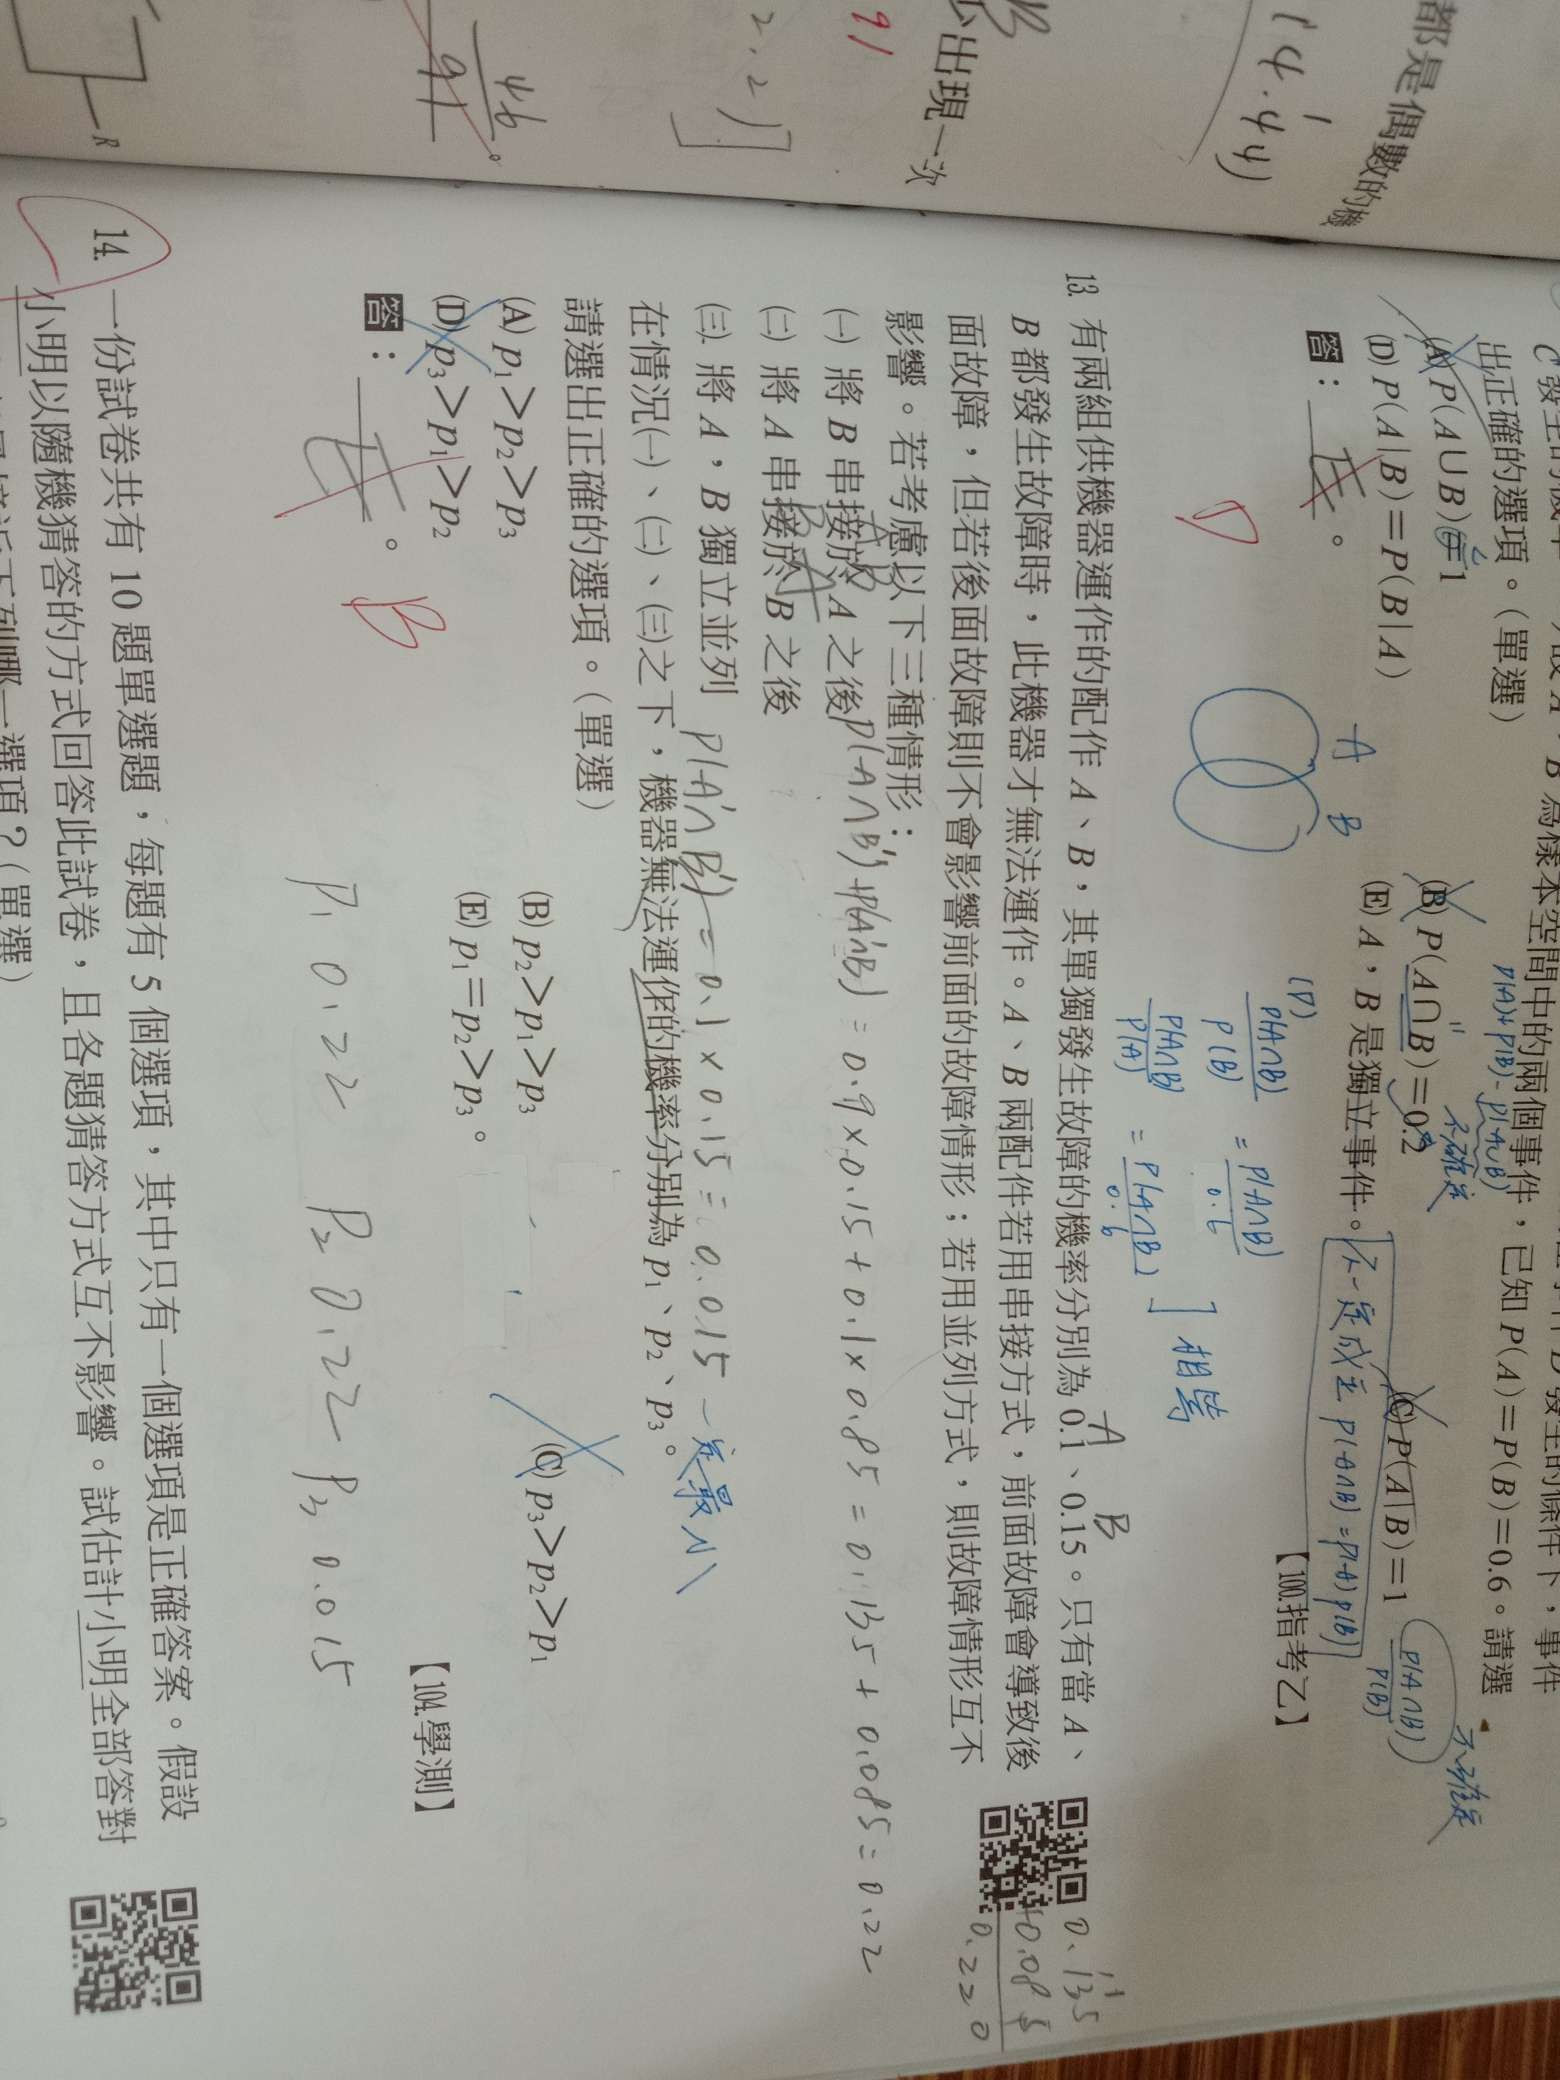 都是偶數的機
14.44)
出現一次
91
2.2)
46
91
R
出正確的選項。(單選)
(A) P(A∪B)=1
(B) P(A∩B)=0.2
(C) P(A|B)=1
(D) P(A|B)=P(B|A)
(E) A,B是獨立事件。
不一定成立 P(A∩B)=P(A)P(B)
P(A)+P(B)-P(A∪B)
不確定
P(A∩B)
P(B)
不確定
答:
D
【100.指考乙】
A
B
(D)
P(A∩B)/P(B) = P(A∩B)/0.6
P(A∩B)/P(A) = P(A∩B)/0.6
] 相等
13. 有兩組供機器運作的配件A、B,其單獨發生故障的機率分別為0.1、0.15。只有當A、
B都發生故障時,此機器才無法運作。A、B兩配件若用串接方式,前面故障會導致後
面故障,但若後面故障則不會影響前面的故障情形;若用並列方式,則故障情形互不
影響。若考慮以下三種情形:
㈠ 將B串接於A之後
P(A∩B')+P(A'∩B)=0.9×0.15+0.1×0.85=0.135+0.085=0.22
㈡ 將A串接於B之後
㈢ 將A,B獨立並列
P(A'∩B')=0.1×0.15=0.015 一定最小
在情況㈠、㈡、㈢之下,機器無法運作的機率分別為p₁、p₂、p₃。
請選出正確的選項。(單選)
(A) p₁>p₂>p₃
(B) p₂>p₁>p₃
(C) p₃>p₂>p₁
(D) p₃>p₁>p₂
(E) p₁=p₂>p₃。
答:
B
【104.學測】
P₁ 0.22 P₂ 0.22 P₃ 0.015
A
B
0.135
+0.085
0.220
14. 一份試卷共有10題單選題,每題有5個選項,其中只有一個選項是正確答案。假設
小明以隨機猜答的方式回答此試卷,且各題猜答方式互不影響。試估計小明全部答對